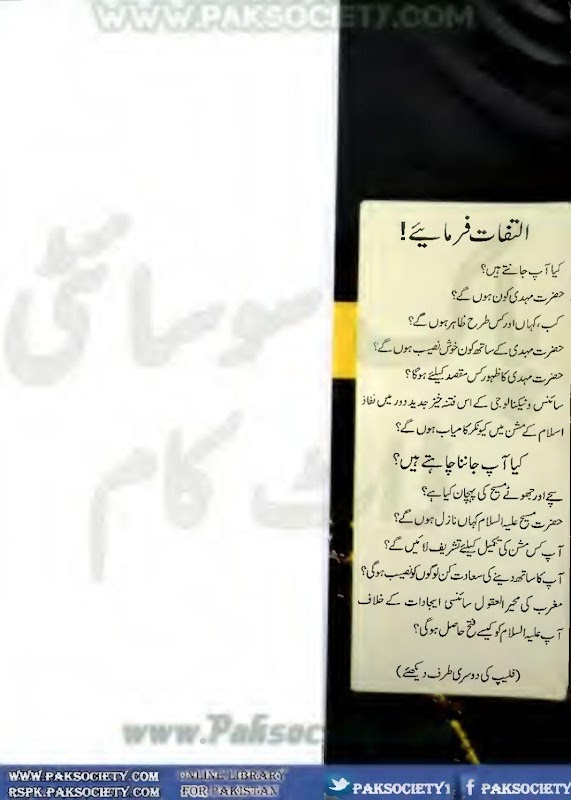 WWW.PAKSOCIETY.COM
التفات فرمایئے!
کیا آپ جانتے ہیں؟
حضرت مہدی کون ہوں گے؟
کب، کہاں اور کس طرح ظاہر ہوں گے؟
حضرت مہدی کے ساتھ کون خوش نصیب ہوں گے؟
حضرت مہدی کا ظہور کس مقصد کیلئے ہوگا؟
سائنس و ٹیکنالوجی کے اس فتنہ خیز جدید دور میں نفاذ
اسلام کے مشن میں کیونکر کامیاب ہوں گے؟
کیا آپ جاننا چاہتے ہیں؟
سچے اور جھوٹے مسیح کی پہچان کیا ہے؟
حضرت مسیح علیہ السلام کہاں نازل ہوں گے؟
آپ کس مشن کی تکمیل کیلئے تشریف لائیں گے؟
آپ کا ساتھ دینے کی سعادت کن لوگوں کو نصیب ہوگی؟
مغرب کی محیر العقول سائنسی ایجادات کے خلاف
آپ علیہ السلام کو کیسے فتح حاصل ہوگی؟
(فلیپ کی دوسری طرف دیکھئے)
پاک سوسائٹی
ڈاٹ کام
www.Paksoc
WWW.PAKSOCIETY.COM
RSPK.PAKSOCIETY.COM
ONLINE LIBRARY
FOR PAKISTAN
PAKSOCIETY1
PAKSOCIETY